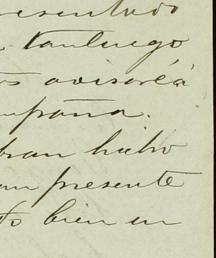 presentado
tanluego
avisaréá
mpaña.
bran hubo
an presente
to bien en